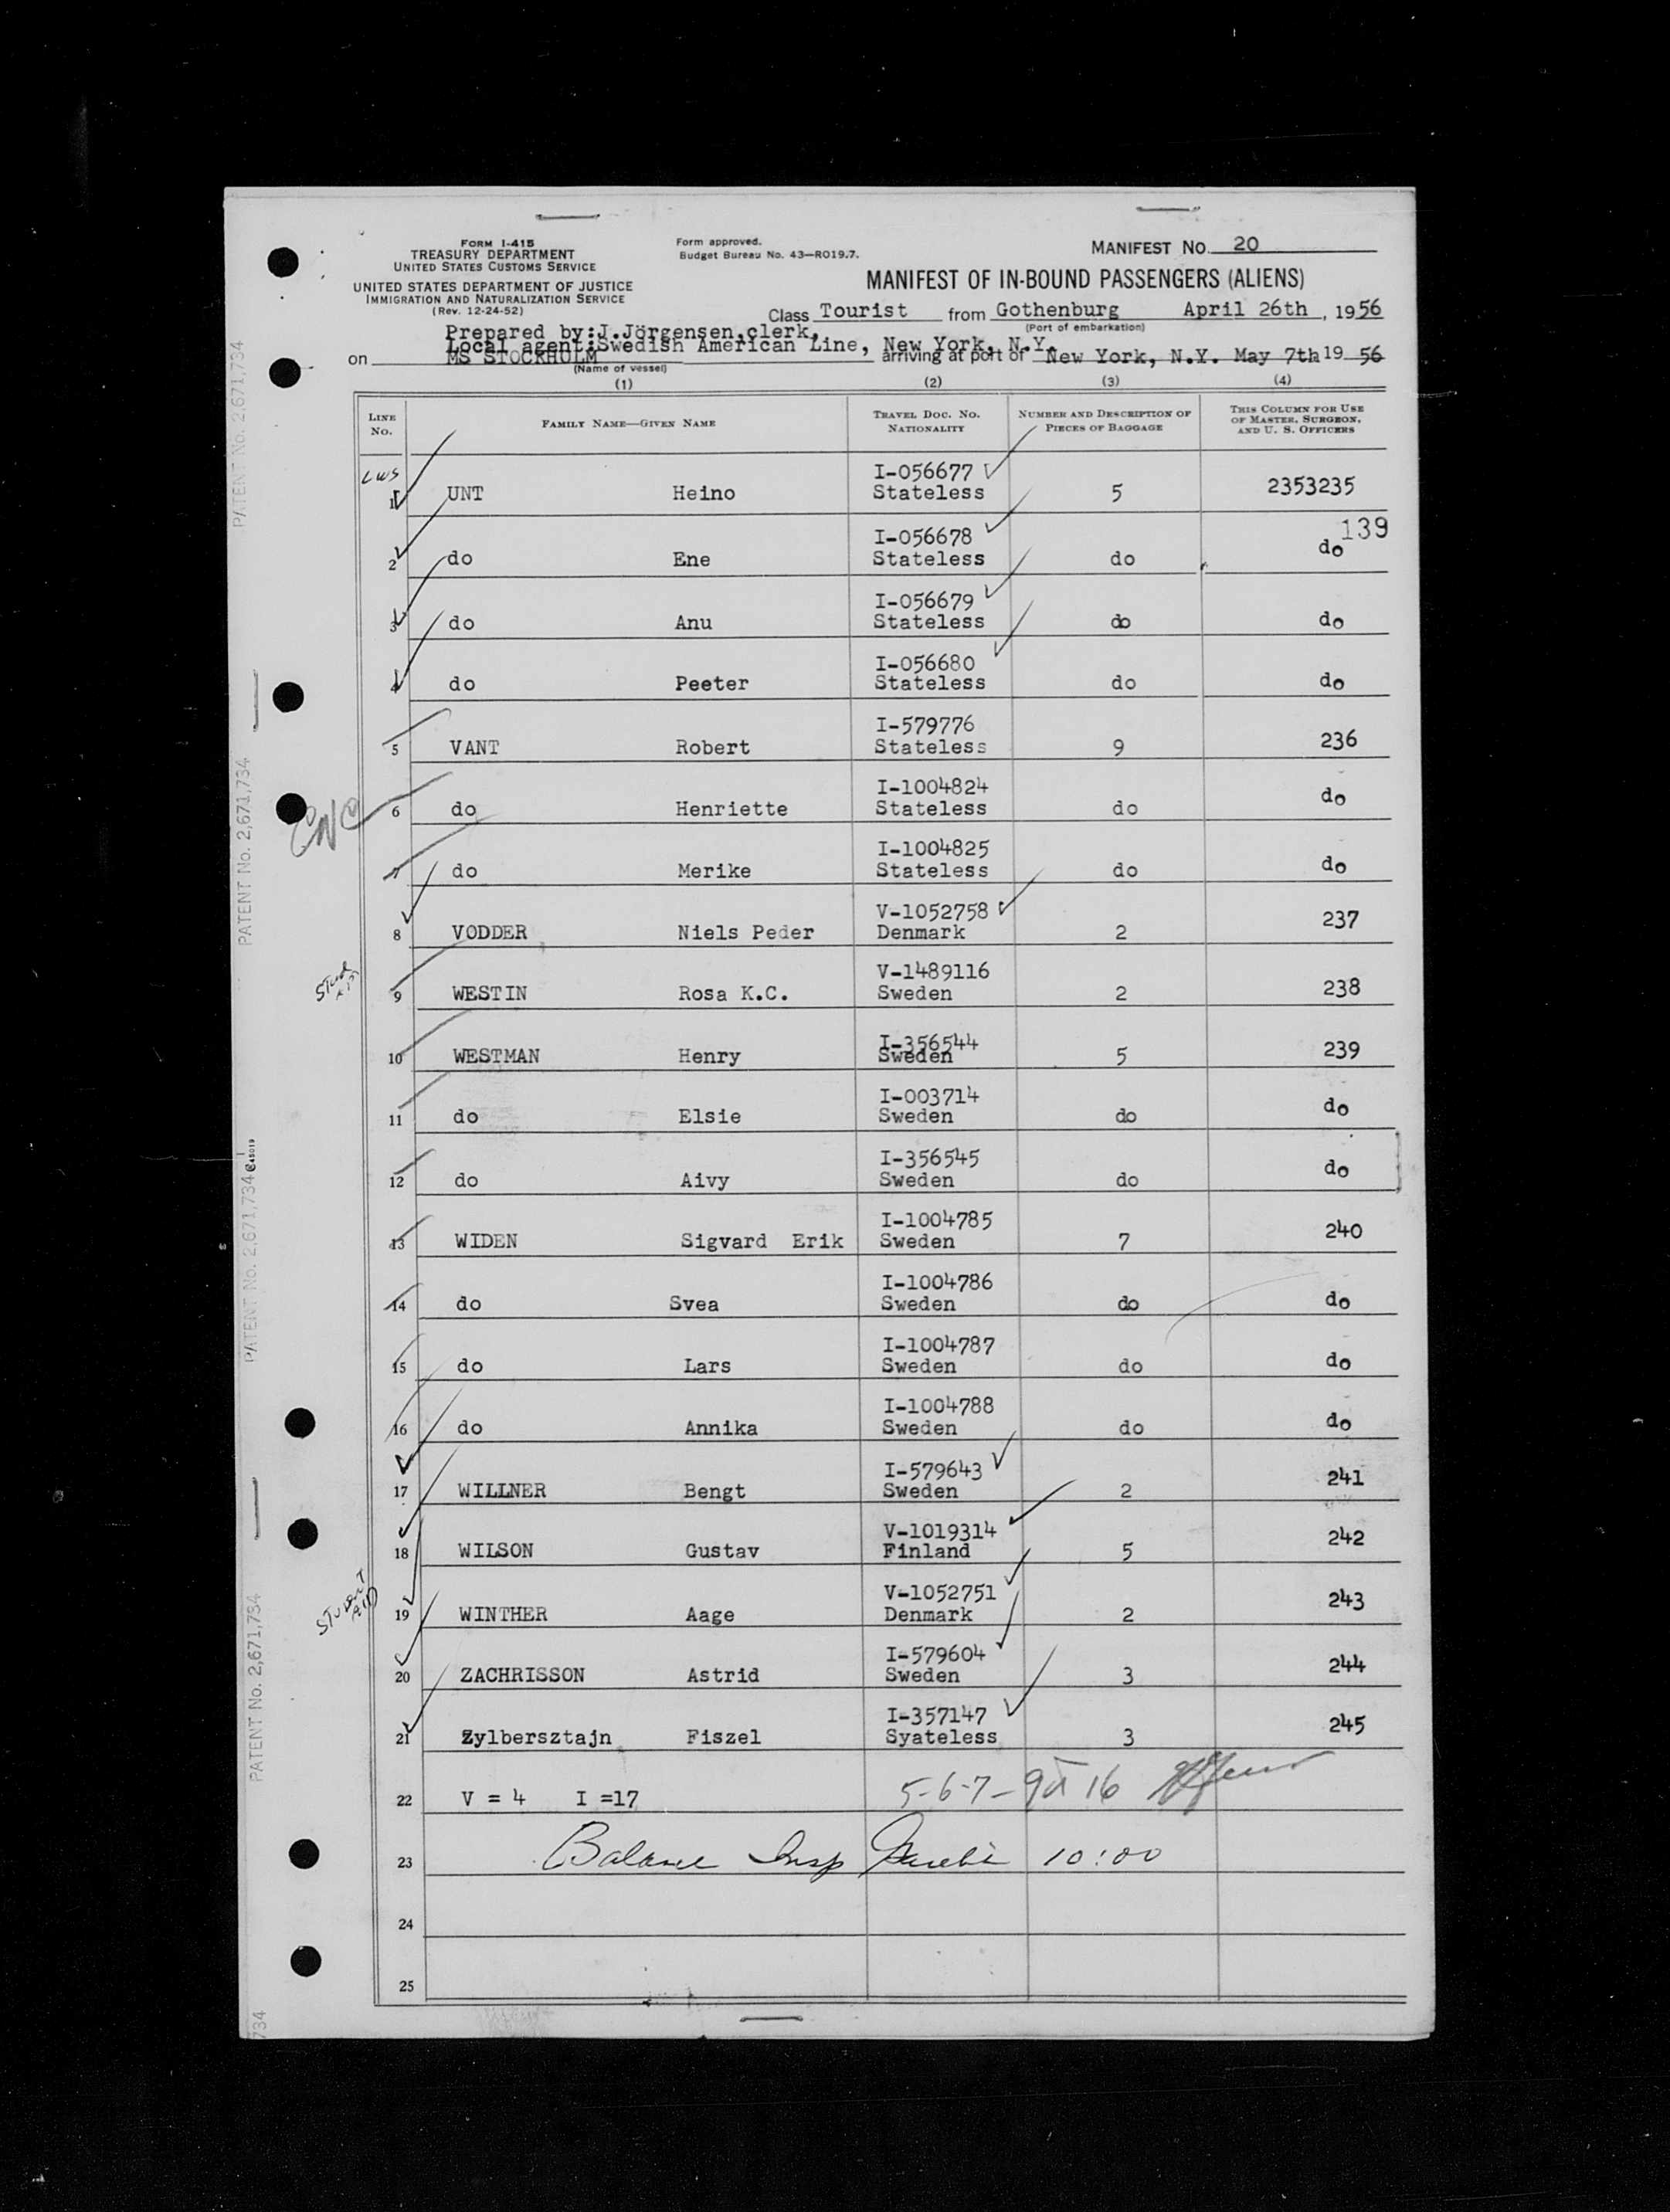 FORM I-415
TREASURY DEPARTMENT
UNITED STATES CUSTOMS SERVICE
UNITED STATES DEPARTMENT OF JUSTICE
IMMIGRATION AND NATURALIZATION SERVICE
(Rev. 12-24-52)
Form approved.
Budget Bureau No. 43—RO19.7.
MANIFEST No. 20
MANIFEST OF IN-BOUND PASSENGERS (ALIENS)
Class Tourist from Gothenburg April 26th, 1956
(Port of embarkation)
Prepared by:J.Jörgensen,clerk,
Local agent:Swedish American Line, New York, N.Y.
on MS STOCKHOLM arriving at port of New York, N.Y. May 7th 19 56
(Name of vessel)
(1) (2) (3) (4)
LINE No. FAMILY NAME—GIVEN NAME TRAVEL DOC. NO. NATIONALITY NUMBER AND DESCRIPTION OF PIECES OF BAGGAGE THIS COLUMN FOR USE OF MASTER, SURGEON, AND U. S. OFFICERS
LWS
I-056677
1 UNT Heino Stateless 5 2353235
139
I-056678
2 do Ene Stateless do do
I-056679
3 do Anu Stateless do do
I-056680
4 do Peeter Stateless do do
I-579776
5 VANT Robert Stateless 9 236
I-1004824
6 do Henriette Stateless do do
ENC
I-1004825
7 do Merike Stateless do do
V-1052758
8 VODDER Niels Peder Denmark 2 237
Stud
V-1489116
9 WESTIN Rosa K.C. Sweden 2 238
I-356544
10 WESTMAN Henry Sweden 5 239
I-003714
11 do Elsie Sweden do do
I-356545
12 do Aivy Sweden do do
I-1004785
13 WIDEN Sigvard Erik Sweden 7 240
I-1004786
14 do Svea Sweden do do
I-1004787
15 do Lars Sweden do do
I-1004788
16 do Annika Sweden do do
I-579643
17 WILLNER Bengt Sweden 2 241
V-1019314
18 WILSON Gustav Finland 5 242
STUDENT
AID
V-1052751
19 WINTHER Aage Denmark 2 243
I-579604
20 ZACHRISSON Astrid Sweden 3 244
I-357147
21 Zylbersztajn Fiszel Syateless 3 245
22 V = 4 I =17 5-6-7-9 à 16
23 Balance Insp 10:00
24
25
PATENT No. 2,671,734
PATENT No. 2,671,734
PATENT No. 2,671,734
PATENT No. 2,671,734
734